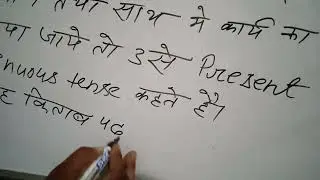 तथा साथ मे कार्य का
जाये तो उसे Present
nuous tense कहते हैं।
किताब पढ़